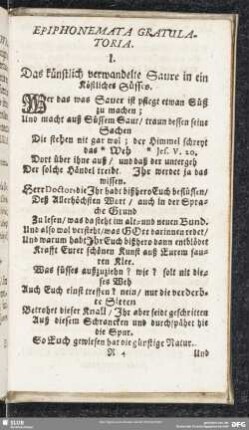 EPIPHONEMATA GRATULA-
TORIA.
I.
Das künstlich verwandelte Saure in ein
Köstliches Süsses.
Wer das was Sauer ist pflege etwan Süß
zu machen;
Und macht auß Süssem Saur/ traun dessen seine
Sachen
Die stehen nit gar wol; der Himmel schreyt
das * Weh * Jes. V. 20,
Dort über ihne auß/ und daß der untergeh
Der solche Händel treibt. Ihr werdet ja das
wissen.
Herr Doctor die Ihr habt bißhero Euch beflissen/
Deß Allerhöchsten Wort/ auch in der Sprache
Grund
Zu lesen/ was da steht im alt- und neuen Bund.
Und also wol versteht/ was GOtt darinnen redet/
Und warum habt Ihr Euch bißhero dann entblödet
Krafft Eurer schönen Kunst auß Eurem sauren
Klee.
Was süsses außzuziehn? wie? solt nit dieses
Weh
Auch Euch einst treffen? nein/ nur die verderbte
Sitten
Betrohet dieser Knall/ Ihr aber seit geschritten
Auß diesem Schrancken und durchspähet hie
die Spur.
So Euch gewiesen hat die günstige Natur.
Und
SLUB